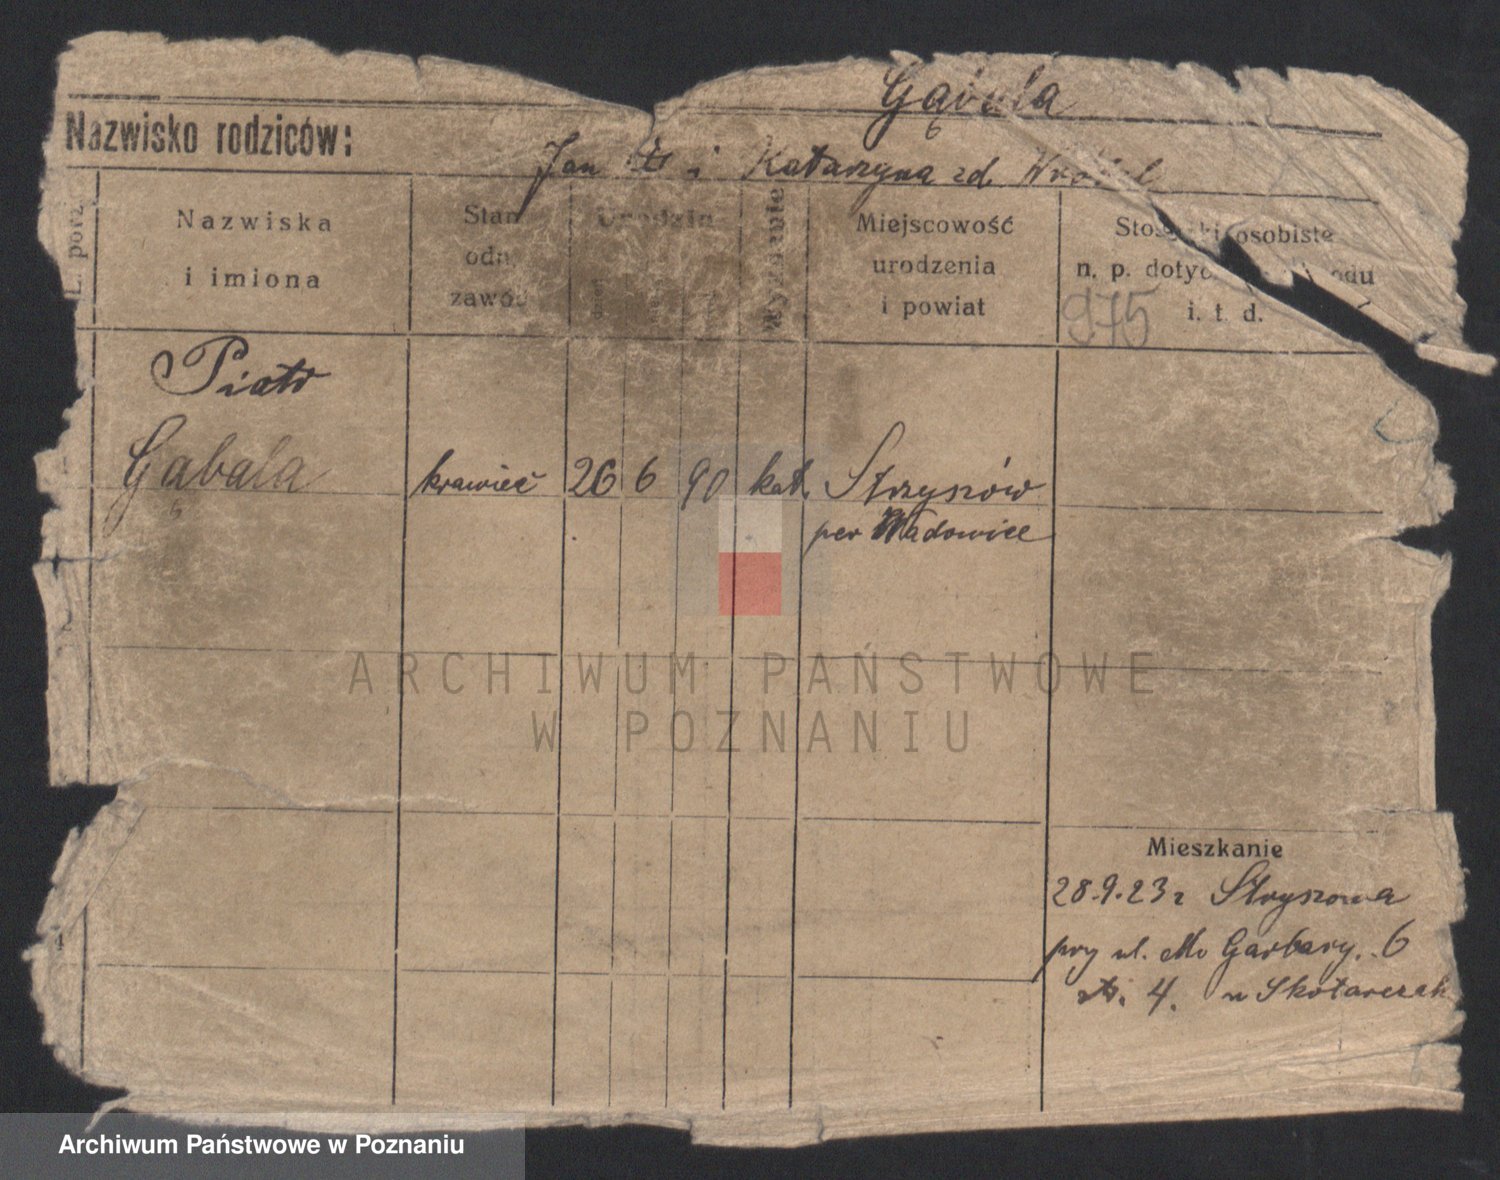 Gąbala
Nazwisko rodziców:
Jan i Katarzyna zd.
L. porz.
Nazwiska
i imiona
Stan
odn.
zawód
Urodzin
Wyznanie
Miejscowość
urodzenia
i powiat
osobiste
n. p.
i. t. d.
975
Piotr
Gabala
krawiec 26 6 90 kat. Stryszów
pow Wadowice
ARCHIWUM PAŃSTWOWE
W POZNANIU
Mieszkanie
28.9.23 r Stryszowa
przy ul. Garbary. 6
4. u Skotarczak
Archiwum Państwowe w Poznaniu